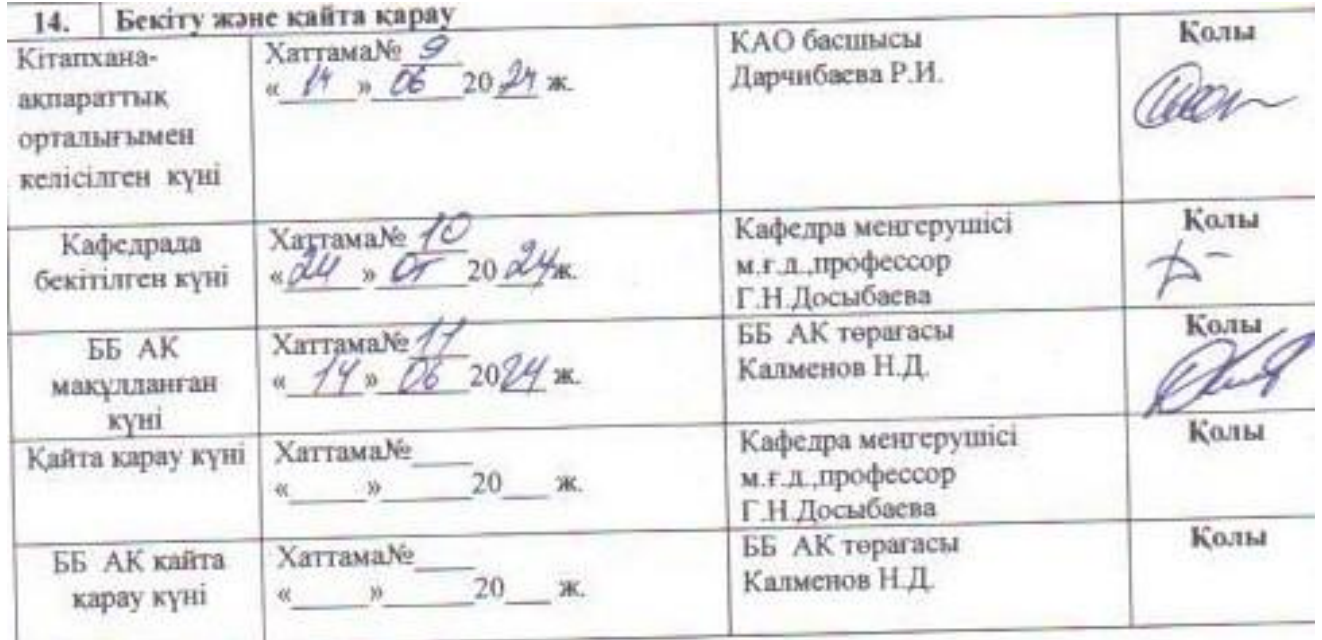 14. Бекіту және қайта қарау
Кітапхана-
ақпараттық
орталығымен
келісілген күні
Хаттама№ 9
« 14 » 06 20 24 ж.
КАО басшысы
Дарчибаева Р.И.
Қолы
Кафедрада
бекітілген күні
Хаттама№ 10
« 24 » 05 20 24 ж.
Кафедра меңгерушісі
м.ғ.д.,профессор
Г.Н.Досыбаева
Қолы
ББ АК
мақұлданған
күні
Хаттама№ 11
« 14 » 06 20 24 ж.
ББ АК төрағасы
Калменов Н.Д.
Қолы
Қайта қарау күні
Хаттама№____
«_____»______20___ ж.
Кафедра меңгерушісі
м.ғ.д.,профессор
Г.Н.Досыбаева
Қолы
ББ АК қайта
қарау күні
Хаттама№____
«_____»______20___ ж.
ББ АК төрағасы
Калменов Н.Д.
Қолы